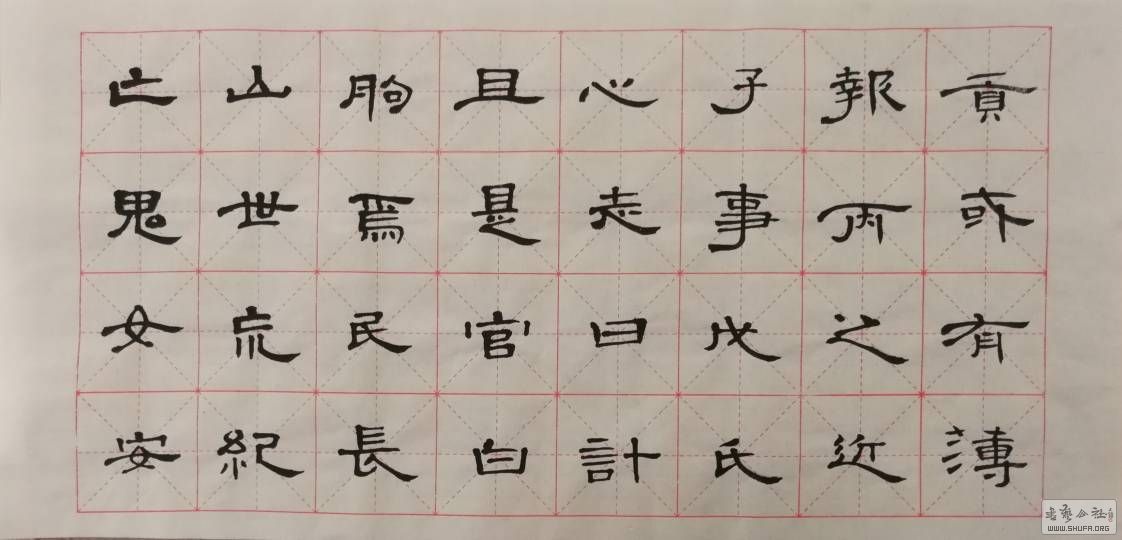 貢或有薄
報丙之近
子事戊氏
心志曰計
且是官白
朐焉民長
山世荒紀
亡鬼女安
书艺公社
WWW.SHUFA.ORG